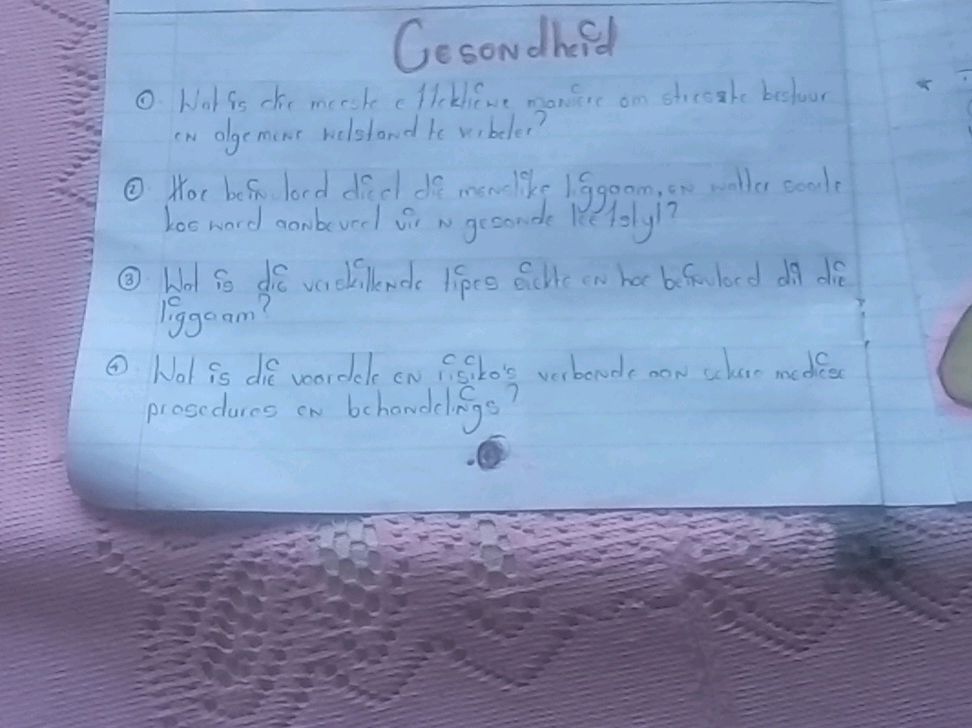 Gesondheid
① Wat is die meeste effektiewe maniere om stress te bestuur
en algemene welstand te verbeter?
② Hoe beïnvloed dieet die menslike liggaam, en watter soorte
kos word aanbeveel vir n gesonde leefstyl?
③ Wat is die verskillende tipes siekte en hoe beïnvloed dit die
liggaam?
④ Wat is die voordele en risiko's verbonde aan sekere mediese
prosedures en behandelings?